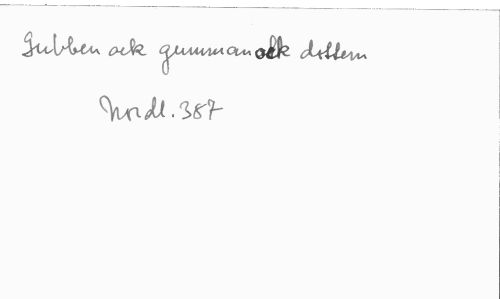 Gubben ock gumman ock dottern
Nordl. 387